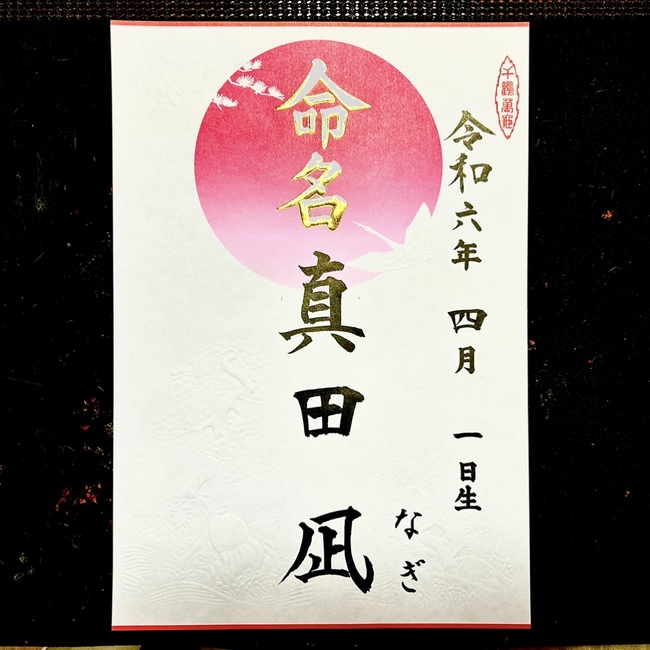 令和六年 四月 一日生
なぎ
命名 真田 凪